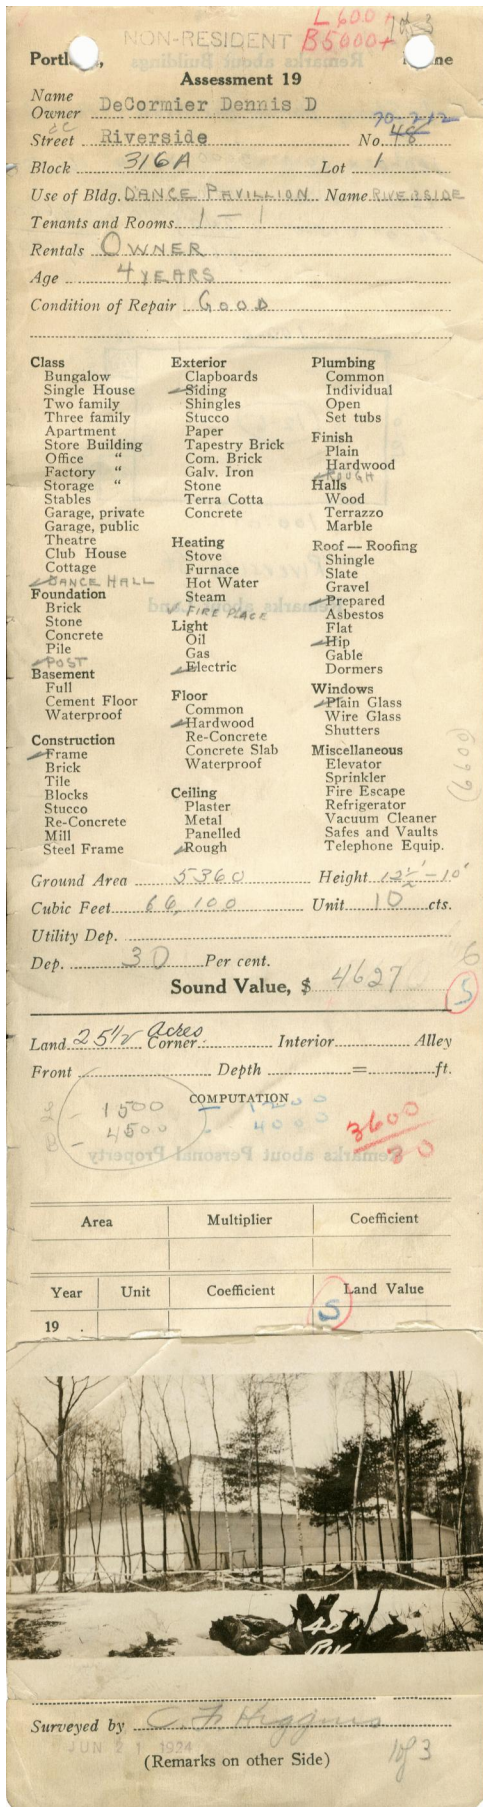 L 600 +
NON-RESIDENT B 5000 +
Portland, Maine
Assessment 19
Name
Owner DeCormier Dennis D
70-212
Street Riverside No. 48
Block 316A Lot 1
Use of Bldg. DANCE PAVILLION Name RIVERSIDE
Tenants and Rooms 1 - 1
Rentals OWNER
Age 4 YEARS
Condition of Repair GOOD
Class
Bungalow
Single House
Two family
Three family
Apartment
Store Building
Office "
Factory "
Storage "
Stables
Garage, private
Garage, public
Theatre
Club House
Cottage
✓ DANCE HALL
Foundation
Brick
Stone
Concrete
Pile
✓ POST
Basement
Full
Cement Floor
Waterproof
Construction
✓ Frame
Brick
Tile
Blocks
Stucco
Re-Concrete
Mill
Steel Frame
Exterior
Clapboards
✓ Siding
Shingles
Stucco
Paper
Tapestry Brick
Com. Brick
Galv. Iron
Stone
Terra Cotta
Concrete
Heating
Stove
Furnace
Hot Water
Steam
✓ FIRE PLACE
Light
Oil
Gas
✓ Electric
Floor
Common
✓ Hardwood
Re-Concrete
Concrete Slab
Waterproof
Ceiling
Plaster
Metal
Panelled
✓ Rough
Plumbing
Common
Individual
Open
Set tubs
Finish
Plain
Hardwood
✓ ROUGH
Halls
Wood
Terrazzo
Marble
Roof — Roofing
Shingle
Slate
Gravel
✓ Prepared
Asbestos
Flat
✓ Hip
Gable
Dormers
Windows
✓ Plain Glass
Wire Glass
Shutters
Miscellaneous
Elevator
Sprinkler
Fire Escape
Refrigerator
Vacuum Cleaner
Safes and Vaults
Telephone Equip.
(6600)
Ground Area 5360 Height 12½' - 10'
Cubic Feet 66,100 Unit 10 cts.
Utility Dep.
Dep. 30 Per cent.
Sound Value, $ 4627
S
Land 25 1/2 Acres Corner Interior Alley
Front Depth = ft.
COMPUTATION
1500 - 1200
4500 - 4000
3600
30
Area Multiplier Coefficient
Year Unit Coefficient Land Value
19 S
Surveyed by C. F. Higgins
JUN 21 1924
(Remarks on other Side) 1 of 3